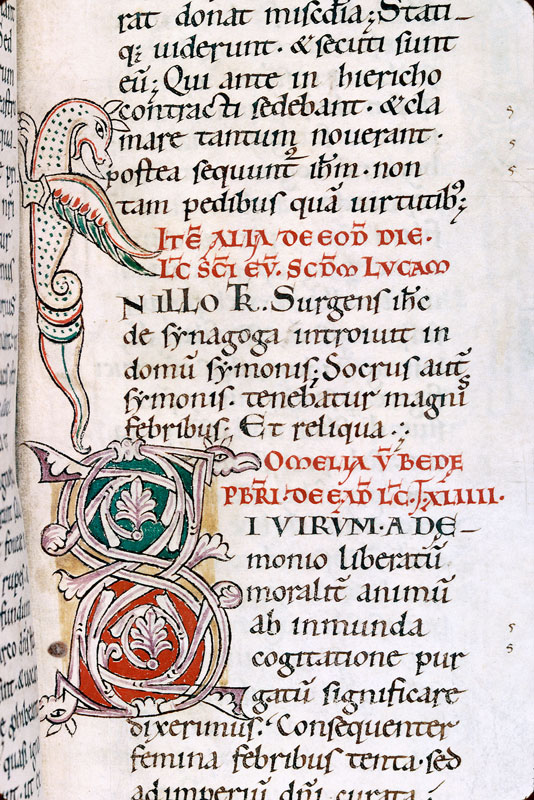 rat donat misc̄dia; Stati-
q; uiderunt. & secuti sunt
eū; Qui ante in hiericho
contracti sedebant. & cla
mare tantum nouerant.
postea sequunt̄ ih̄m. non
tam pedibus quā uirtutib;
ITĒ ALIA DE EOD̄ DIE.
L̄C S̄C̄I EV̄. SC̄DM LVCAM
IN ILLO T̄R. Surgens ih̄c
de synagoga introiuit in
domū symonis; Socrus aut̄
symonis. tenebatur magnis
febribus. Et reliqua.
OMELIA V̄ BEDE
PB̄RI DE EAD̄ L̄C. LXIIIII.
SI VIRVM. A DE-
monio liberatū
moralit̄ animū
ab inmunda
cogitatione pur
gatū significare
dixerimus. Consequenter
femina febribus tenta. sed
ad imperiū dn̄i curata;